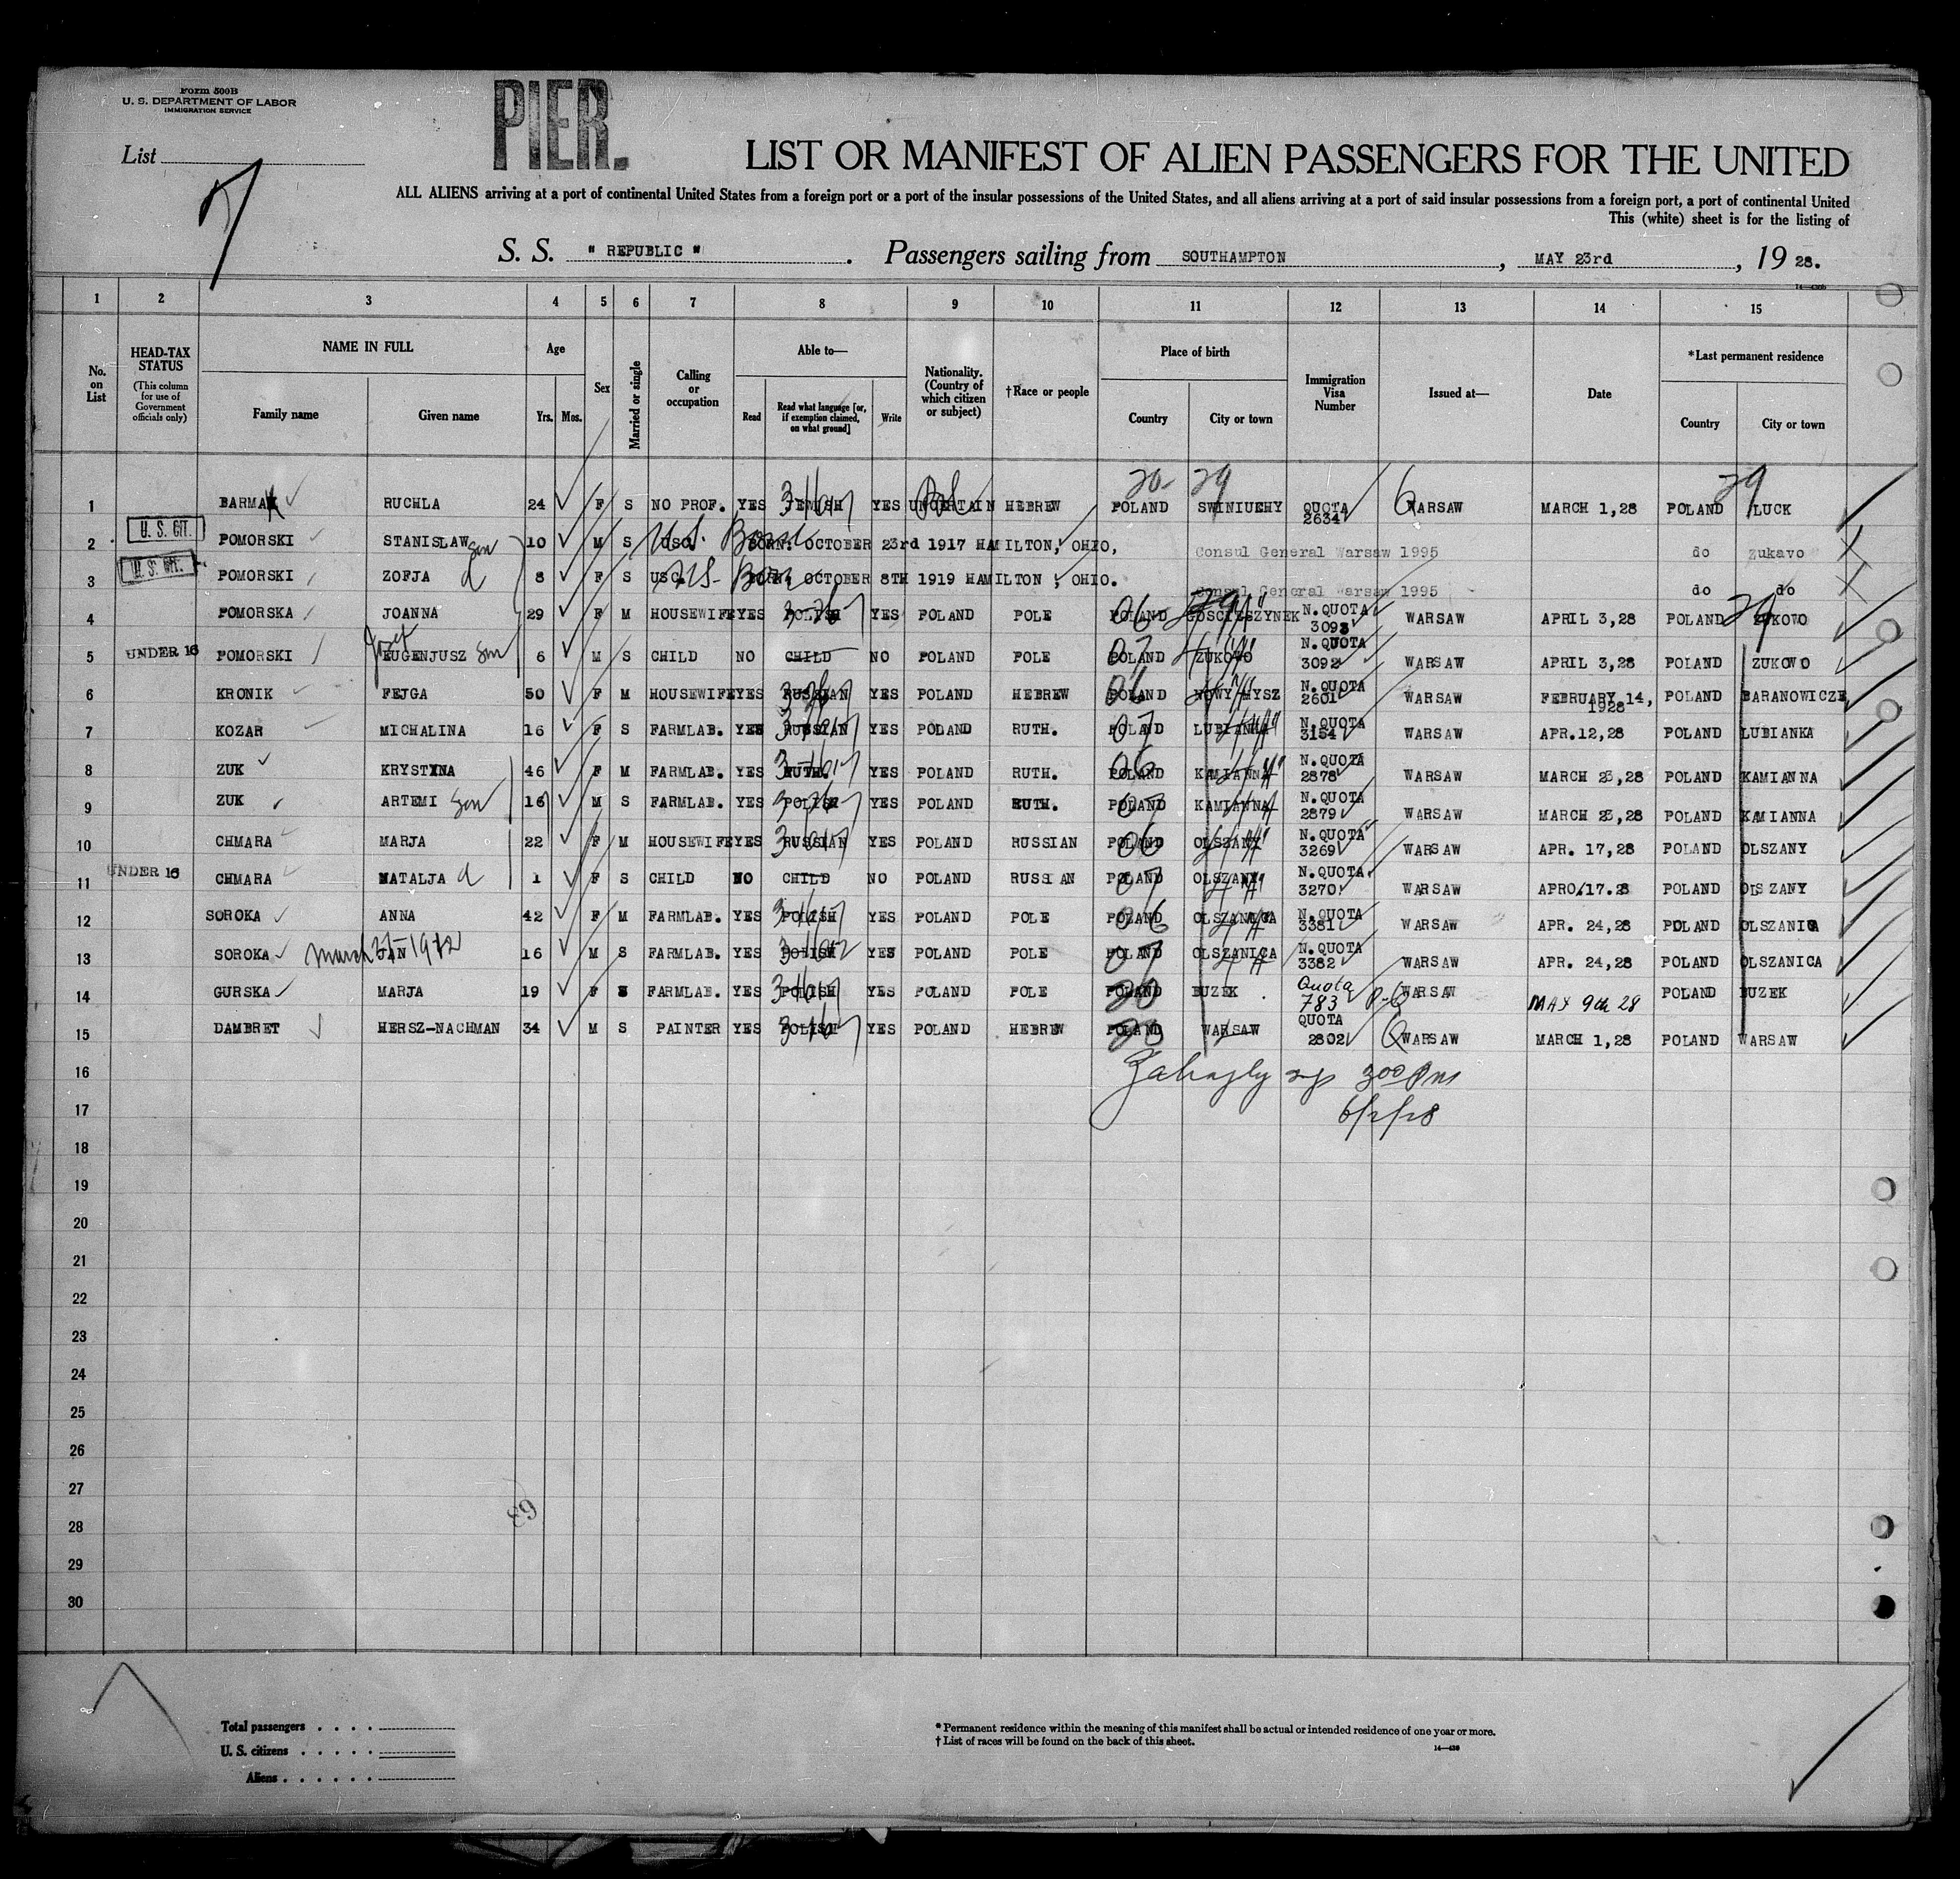 Form 500B
U. S. DEPARTMENT OF LABOR
IMMIGRATION SERVICE
PIER.
List
LIST OR MANIFEST OF ALIEN PASSENGERS FOR THE UNITED
ALL ALIENS arriving at a port of continental United States from a foreign port or a port of the insular possessions of the United States, and all aliens arriving at a port of said insular possessions from a foreign port, a port of continental United
This (white) sheet is for the listing of
S. S. " REPUBLIC " . Passengers sailing from SOUTHAMPTON , MAY 23rd , 19 28.
1 2 3 4 5 6 7 8 9 10 11 12 13 14 15
No. on List
HEAD-TAX STATUS
(This column for use of Government officials only)
NAME IN FULL
Family name Given name
Age
Yrs. Mos.
Sex
Married or single
Calling or occupation
Able to—
Read
Read what language [or, if exemption claimed, on what ground]
Write
Nationality. (Country of which citizen or subject)
†Race or people
Place of birth
Country City or town
Immigration Visa Number
Issued at—
Date
*Last permanent residence
Country City or town
20- 29 29
1 BARMAK RUCHLA 24 F S NO PROF. YES JEWISH YES UNCERTAIN HEBREW POLAND SWINIUCHY QUOTA 2634 WARSAW MARCH 1,28 POLAND LUCK
U. S. CIT.
2 POMORSKI STANISLAW son 10 M S USC. U.S. Born BORN: OCTOBER 23rd 1917 HAMILTON, OHIO, Consul General Warsaw 1995 do Zukavo
U. S. CIT.
3 POMORSKI ZOFJA d 8 F S USC. US- Born BORN: OCTOBER 8TH 1919 HAMILTON , OHIO. Consul General Warsaw 1995 do do
4 POMORSKA JOANNA 29 F M HOUSEWIFE YES POLISH YES POLAND POLE 06 POLAND GOSCIESZYNEK N.QUOTA 3093 WARSAW APRIL 3,28 POLAND 29 ZUKOWO
5 UNDER 16 POMORSKI Jozef EUGENJUSZ son 6 M S CHILD NO CHILD NO POLAND POLE 07 POLAND ZUKOWO N.QUOTA 3092 WARSAW APRIL 3,28 POLAND ZUKOWO
6 KRONIK FEJGA 50 F M HOUSEWIFE YES RUSSIAN YES POLAND HEBREW 06 POLAND NOWY MYSZ N.QUOTA 2601 WARSAW FEBRUARY 14, 1928 POLAND BARANOWICZE
7 KOZAR MICHALINA 16 F S FARMLAB. YES RUSSIAN YES POLAND RUTH. 07 POLAND LUBIANKA N.QUOTA 3154 WARSAW APR.12,28 POLAND LUBIANKA
8 ZUK KRYSTYNA 46 F M FARMLAB. YES RUTH. YES POLAND RUTH. 06 POLAND KAMIANNA N.QUOTA 2878 WARSAW MARCH 23,28 POLAND KAMIANNA
9 ZUK ARTEMI son 16 M S FARMLAB. YES POLISH YES POLAND RUTH. 07 POLAND KAMIANNA N.QUOTA 2879 WARSAW MARCH 23,28 POLAND KAMIANNA
10 CHMARA MARJA 22 F M HOUSEWIFE YES RUSSIAN YES POLAND RUSSIAN 06 POLAND OLSZANY N.QUOTA 3269 WARSAW APR. 17,28 POLAND OLSZANY
11 UNDER 16 CHMARA NATALJA d 1 F S CHILD NO CHILD NO POLAND RUSSIAN 07 POLAND OLSZANY N.QUOTA 3270 WARSAW APRO.17.28 POLAND OLSZANY
12 SOROKA ANNA 42 F M FARMLAB. YES POLISH YES POLAND POLE 06 POLAND OLSZANICA N.QUOTA 3381 WARSAW APR. 24,28 POLAND OLSZANICA
13 SOROKA March 27-1912 JAN 16 M S FARMLAB. YES POLISH YES POLAND POLE 07 POLAND OLSZANICA N.QUOTA 3382 WARSAW APR. 24,28 POLAND OLSZANICA
14 GURSKA MARJA 19 F S FARMLAB. YES POLISH YES POLAND POLE 20 POLAND BUZEK Quota 783 WARSAW MAY 9th 28 POLAND BUZEK
15 DAMBRET HERSZ-NACHMAN 34 M S PAINTER YES POLISH YES POLAND HEBREW 20 POLAND WARSAW QUOTA 2802 WARSAW MARCH 1,28 POLAND WARSAW
16 300 Pm
17 6/2/28
18
19
20
21
22
23
24
25
26
27
28
29
30
63
Total passengers . . . .
U. S. citizens . . . . .
Aliens . . . . . .
* Permanent residence within the meaning of this manifest shall be actual or intended residence of one year or more.
† List of races will be found on the back of this sheet.
14—430